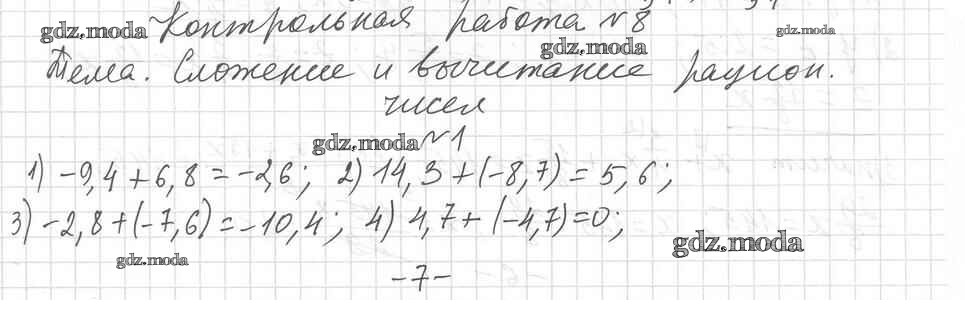 Контрольная работа №8
gdz.moda gdz.moda gdz.moda
Тема. Сложение и вычитание рацион.
чисел
gdz.moda №1
1) -9,4 + 6,8 = -2,6; 2) 14,3 + (-8,7) = 5,6;
3) -2,8 + (-7,6) = -10,4; 4) 4,7 + (-4,7) = 0;
gdz.moda gdz.moda
-7-